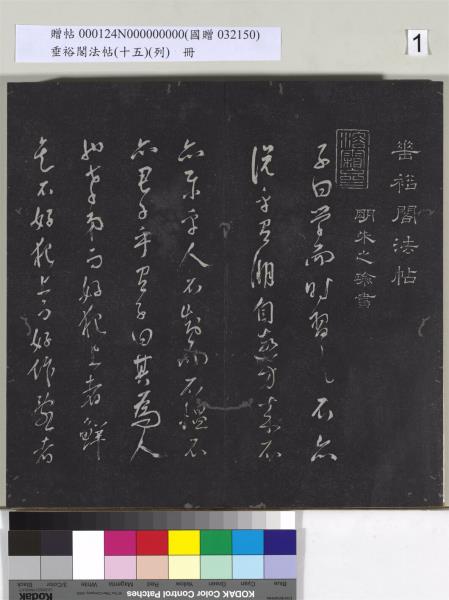 贈帖 000124N000000000(國贈 032150)
垂裕閣法帖(十五)(列) 冊
1
垂裕閣法帖
明朱之瑜書
子曰學而時習之不亦
說乎有朋自遠方來不
亦樂乎人不知而不慍不
亦君子乎有子曰其為人
也孝弟而好犯上者鮮
矣不好犯上而好作亂者
KODAK Color Control Patches
Blue Cyan Green Yellow Red Magenta White 3/Color Black